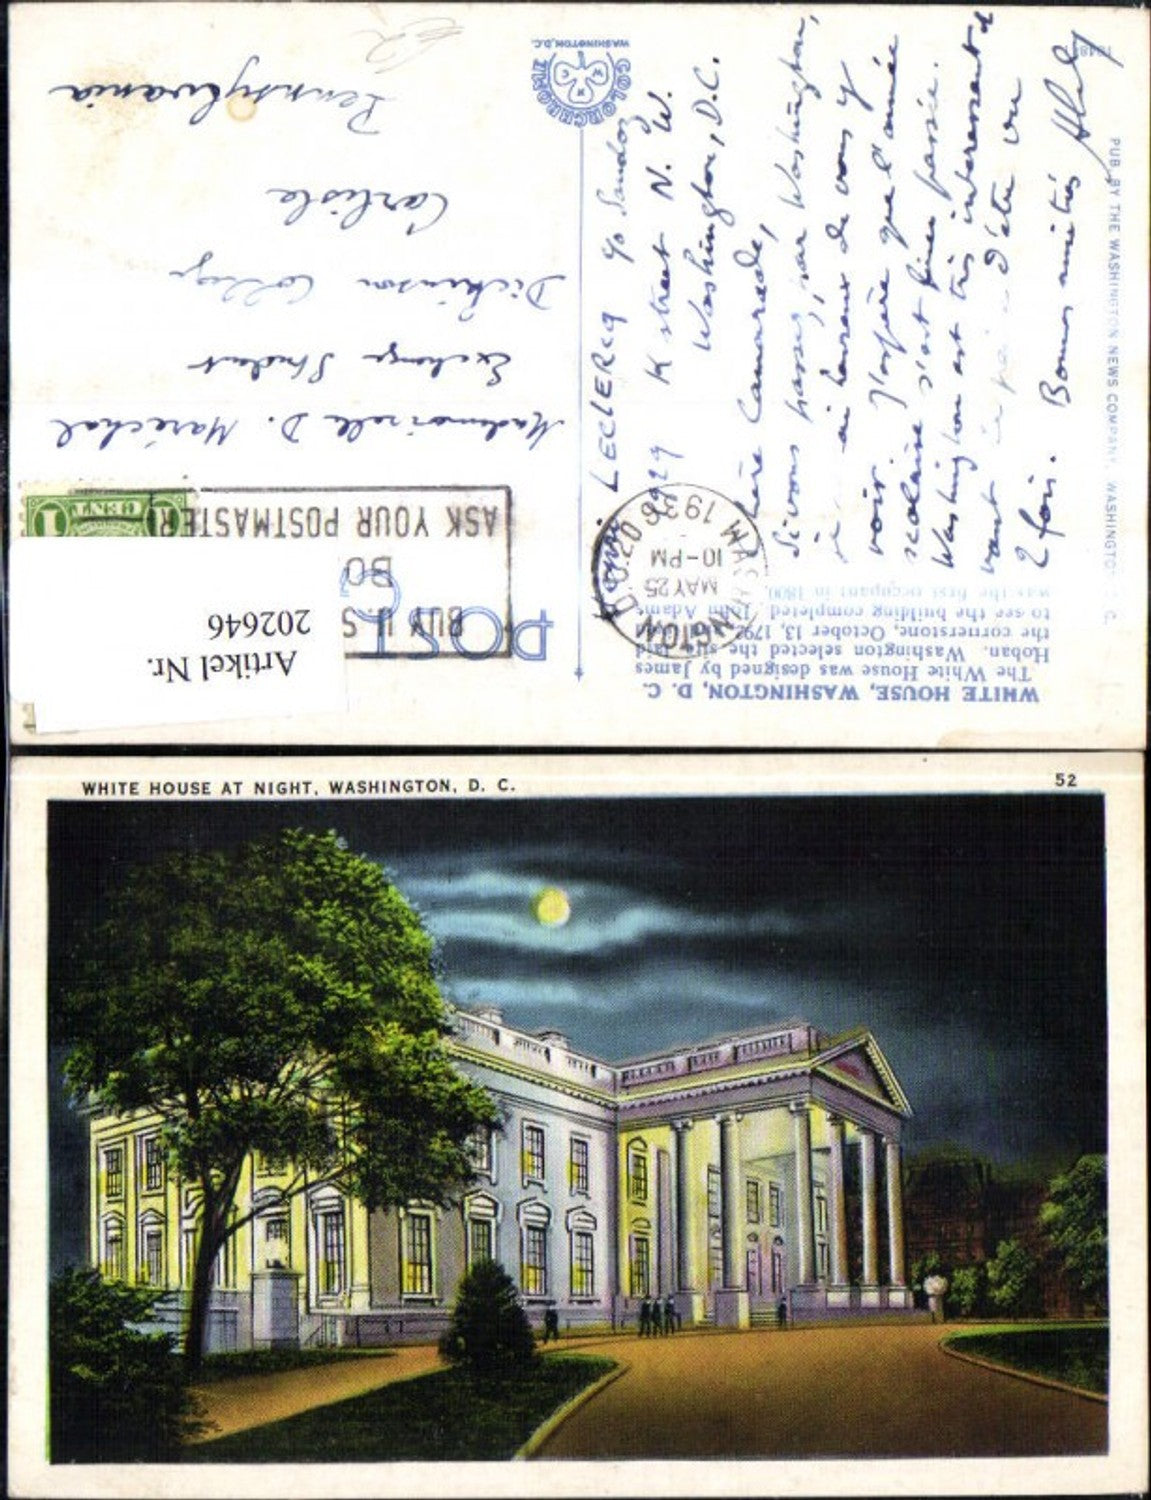 WHITE HOUSE, WASHINGTON, D. C.
The White House was designed by James
Hoban. Washington selected the site, laid
the cornerstone, October 13, 1792
to see the building completed. John Adams
was the first occupant in 1800.
POST C
BUY U.S
BO
ASK YOUR POSTMASTER
WASHINGTON, D.C. 20
MAY 25
10-PM
193
1 CENT
Artikel Nr.
202646
LECLERCQ c/o Sandoz
K street N. W.
Washington, D.C.
Chère Camarade,
Si vous passez par Washington,
je heureux de vous y
voir. J'espère que l'année
scolaire s'est bien passée.
Washington est très intéressant
vaut d'être vu
2 fois. Bonnes amitiés
Mademoiselle D. Maréchal
Exchange Student
Dickinson College
Carlisle
Pennsylvania
COLORCHROME
WASHINGTON, D.C.
PUB. BY THE WASHINGTON NEWS COMPANY, WASHINGTON, D. C.
WHITE HOUSE AT NIGHT, WASHINGTON, D. C.
52